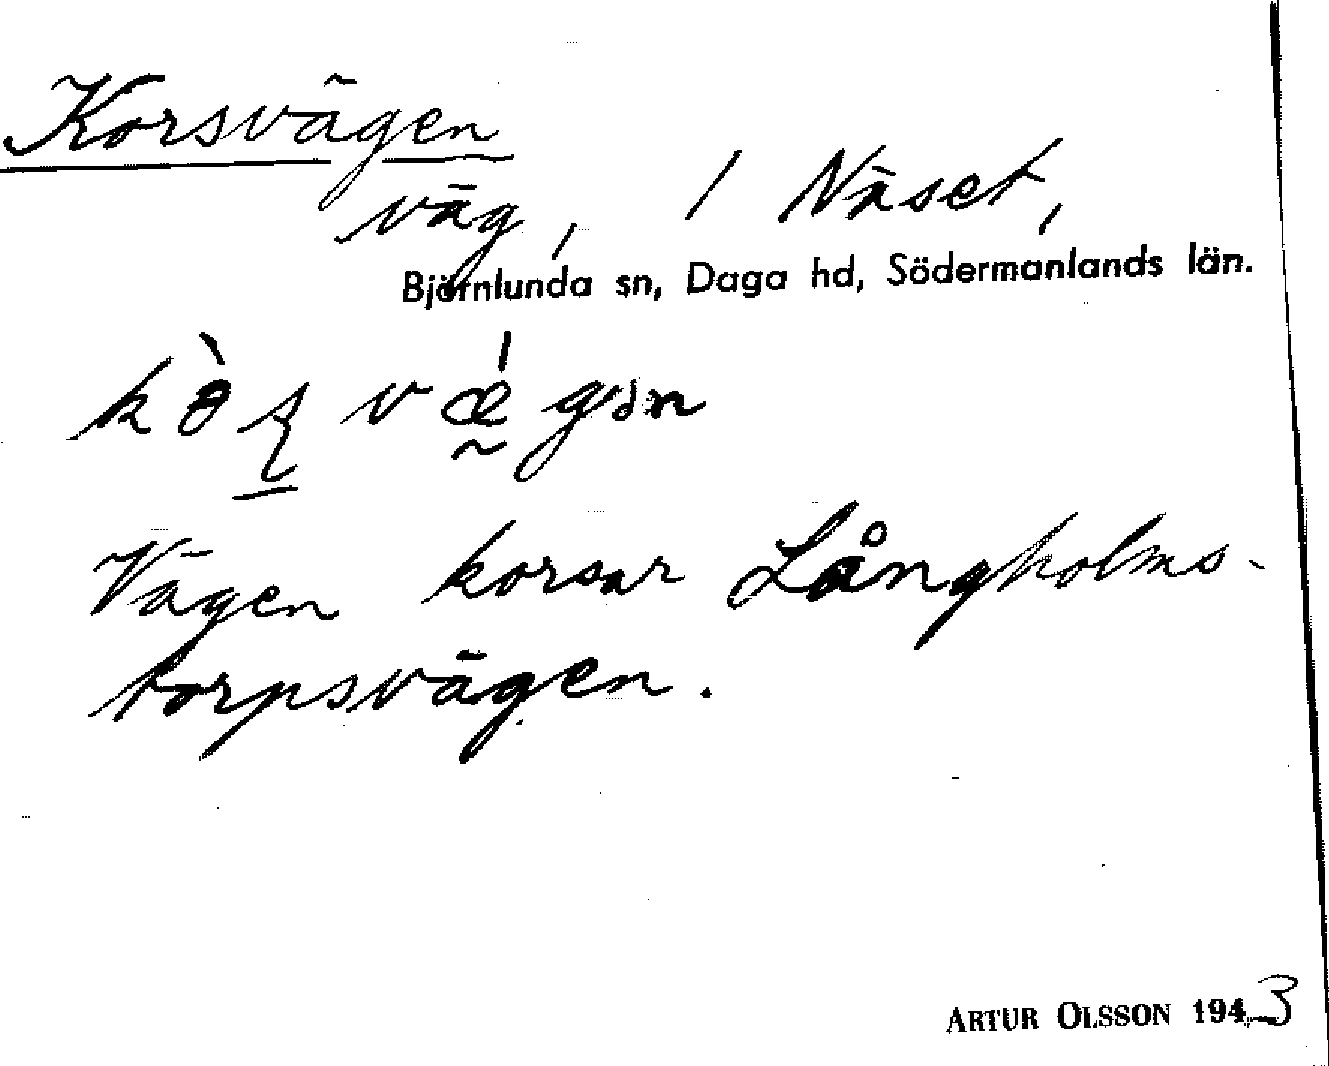 Korsvägen
väg, 1 Näset,
Björnlunda sn, Daga hd, Södermanlands län.
Vägen korsar Långholms-
torpsvägen.
ARTUR OLSSON 1943